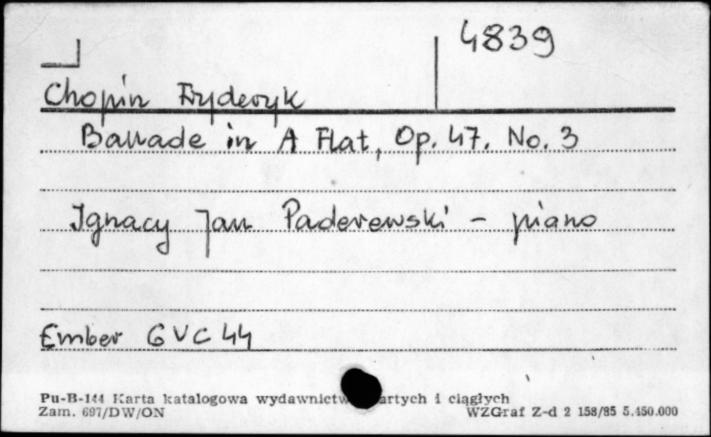 4839
Chopin Fryderyk
Ballade in A Flat, Op. 47. No. 3
Ignacy Jan Paderewski - piano
Ember GVC 44
Pu-B-144 Karta katalogowa wydawnictw artych i ciągłych
Zam. 697/DW/ON WZGraf Z-d 2 158/85 5.450.000